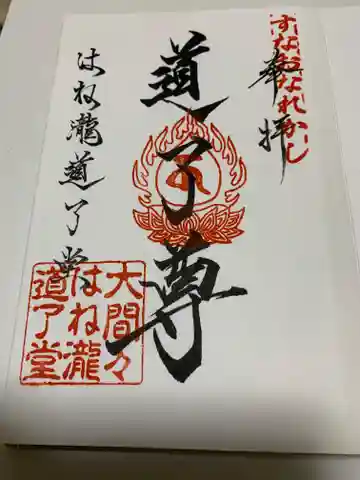 すなおなれかし
奉拝
道了尊
はね瀧道了堂
大間々
はね瀧
道了堂